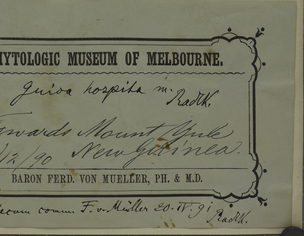 HYTOLOGIC MUSEUM OF MELBOURNE.
Guioa hospita n.
Radlk.
Towards Mount Yule
/12/90 New Guinea
BARON FERD. VON MUELLER, PH. & M.D.
comm. F. v. Müller 20. IV. 91 Radlk.